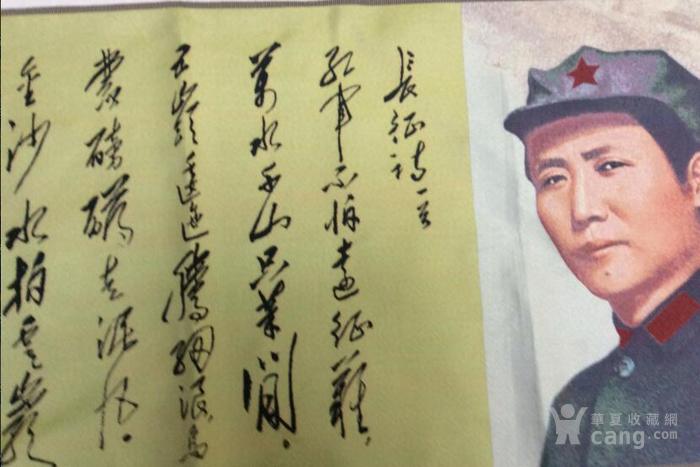 長征詩一首
紅軍不怕遠征難，
萬水千山只等閒。
五嶺逶迤騰細浪，烏
蒙磅礴走泥丸。
金沙水拍雲崖
華夏收藏網
cang.com